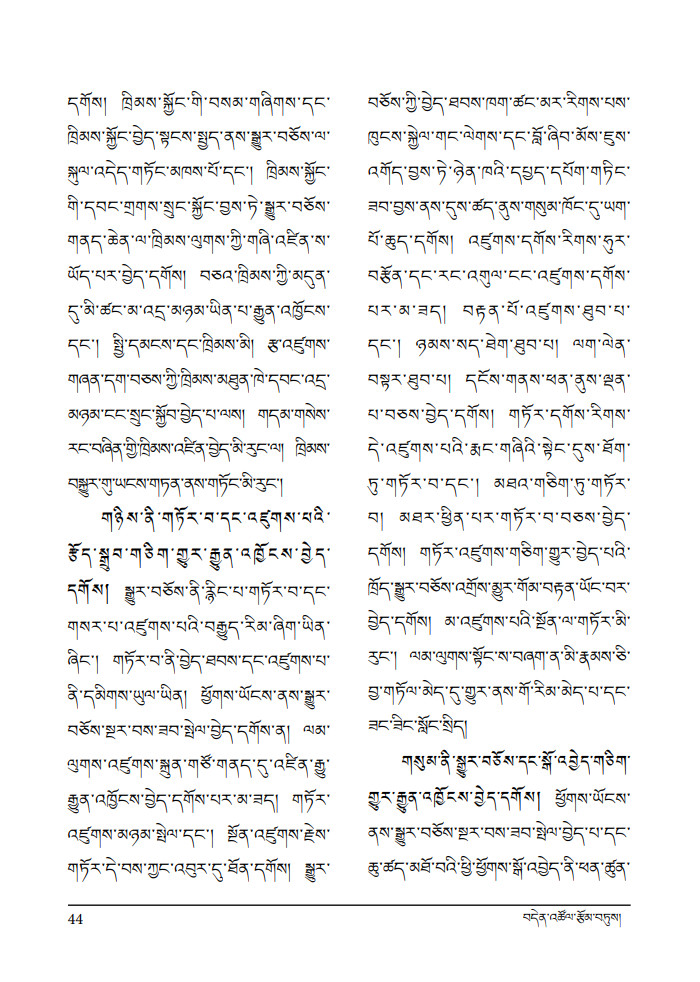 དགོས། ཁྲིམས་སྐྱོང་གི་བསམ་གཞིགས་དང་
ཁྲིམས་སྐྱོང་བྱེད་སྟངས་སྤྱད་ནས་སྒྱུར་བཅོས་ལ་
སྐུལ་འདེད་གཏོང་མཁས་པོ་དང་། ཁྲིམས་སྐྱོང་
གི་དབང་གྲགས་སྲུང་སྐྱོང་བྱས་ཏེ་སྒྱུར་བཅོས་
གནད་ཆེན་ལ་ཁྲིམས་ལུགས་ཀྱི་གཞི་འཛིན་ས་
ཡོད་པར་བྱེད་དགོས། བཅའ་ཁྲིམས་ཀྱི་མདུན་
དུ་མི་ཚང་མ་འདྲ་མཉམ་ཡིན་པ་རྒྱུན་འཁྱོངས་
དང་། སྤྱི་དམངས་དང་ཁྲིམས་མི། རྩ་འཛུགས་
གཞན་དག་བཅས་ཀྱི་ཁྲིམས་མཐུན་ཁེ་དབང་འདྲ་
མཉམ་ངང་སྲུང་སྐྱོབ་བྱེད་པ་ལས། གདམ་གསེས་
རང་བཞིན་གྱི་ཁྲིམས་འཛིན་བྱེད་མི་རུང་ལ། ཁྲིམས་
བསྒྱུར་གུ་ཡངས་གཏན་ནས་གཏོང་མི་རུང་།
གཉིས་ནི་གཏོར་བ་དང་འཛུགས་པའི་
རྩོད་སྒྲུབ་གཅིག་གྱུར་རྒྱུན་འཁྱོངས་བྱེད་
དགོས། སྒྱུར་བཅོས་ནི་རྙིང་པ་གཏོར་བ་དང་
གསར་པ་འཛུགས་པའི་བརྒྱུད་རིམ་ཞིག་ཡིན་
ཞིང་། གཏོར་བ་ནི་བྱེད་ཐབས་དང་འཛུགས་པ་
ནི་དམིགས་ཡུལ་ཡིན། ཕྱོགས་ཡོངས་ནས་སྒྱུར་
བཅོས་སྔར་བས་ཟབ་སྤེལ་བྱེད་དགོས་ན། ལམ་
ལུགས་འཛུགས་སྐྲུན་གཙོ་གནད་དུ་འཛིན་རྒྱུ་
རྒྱུན་འཁྱོངས་བྱེད་དགོས་པར་མ་ཟད། གཏོར་
འཛུགས་མཉམ་སྤེལ་དང་། སྔོན་འཛུགས་རྗེས་
གཏོར་དེ་བས་ཀྱང་འབུར་དུ་ཐོན་དགོས། སྒྱུར་
བཅོས་ཀྱི་བྱེད་ཐབས་ཁག་ཚང་མར་རིགས་པས་
ཁུངས་སྐྱེལ་གང་ལེགས་དང་བློ་ཞིབ་མོས་ཇུས་
འགོད་བྱས་ཏེ་ཉེན་ཁའི་དཔྱད་དཔོག་གཏིང་
ཟབ་བྱས་ནས་དུས་ཚད་ནུས་གསུམ་ཁོང་དུ་ཡག་
པོ་ཆུད་དགོས། འཛུགས་དགོས་རིགས་ཧུར་
བརྩོན་དང་རང་འགུལ་ངང་འཛུགས་དགོས་
པར་མ་ཟད། བརྟན་པོ་འཛུགས་ཐུབ་པ་
དང་། ཉམས་སད་ཐེག་ཐུབ་པ། ལག་ལེན་
བསྟར་ཐུབ་པ། དངོས་གནས་ཕན་ནུས་ལྡན་
པ་བཅས་བྱེད་དགོས། གཏོར་དགོས་རིགས་
དེ་འཛུགས་པའི་རྨང་གཞིའི་སྟེང་དུས་ཐོག་
ཏུ་གཏོར་བ་དང་། མཐའ་གཅིག་ཏུ་གཏོར་
བ། མཐར་ཕྱིན་པར་གཏོར་བ་བཅས་བྱེད་
དགོས། གཏོར་འཛུགས་གཅིག་གྱུར་བྱེད་པའི་
ཁྲོད་སྒྱུར་བཅོས་འགྲོས་མྱུར་གོམ་བརྟན་ཡོང་བར་
བྱེད་དགོས། མ་འཛུགས་པའི་སྔོན་ལ་གཏོར་མི་
རུང་། ལམ་ལུགས་སྟོང་ས་བཞག་ན་མི་རྣམས་ཅི་
བྱ་གཏོལ་མེད་དུ་གྱུར་ནས་གོ་རིམ་མེད་པ་དང་
ཟང་ཟིང་སློང་སྲིད།
གསུམ་ནི་སྒྱུར་བཅོས་དང་སྒོ་འབྱེད་གཅིག་
གྱུར་རྒྱུན་འཁྱོངས་བྱེད་དགོས། ཕྱོགས་ཡོངས་
ནས་སྒྱུར་བཅོས་སྔར་བས་ཟབ་སྤེལ་བྱེད་པ་དང་
ཆུ་ཚད་མཐོ་བའི་ཕྱི་ཕྱོགས་སྒོ་འབྱེད་ནི་ཕན་ཚུན་
44
བདེན་འཚོལ་རྩོམ་བཏུས།